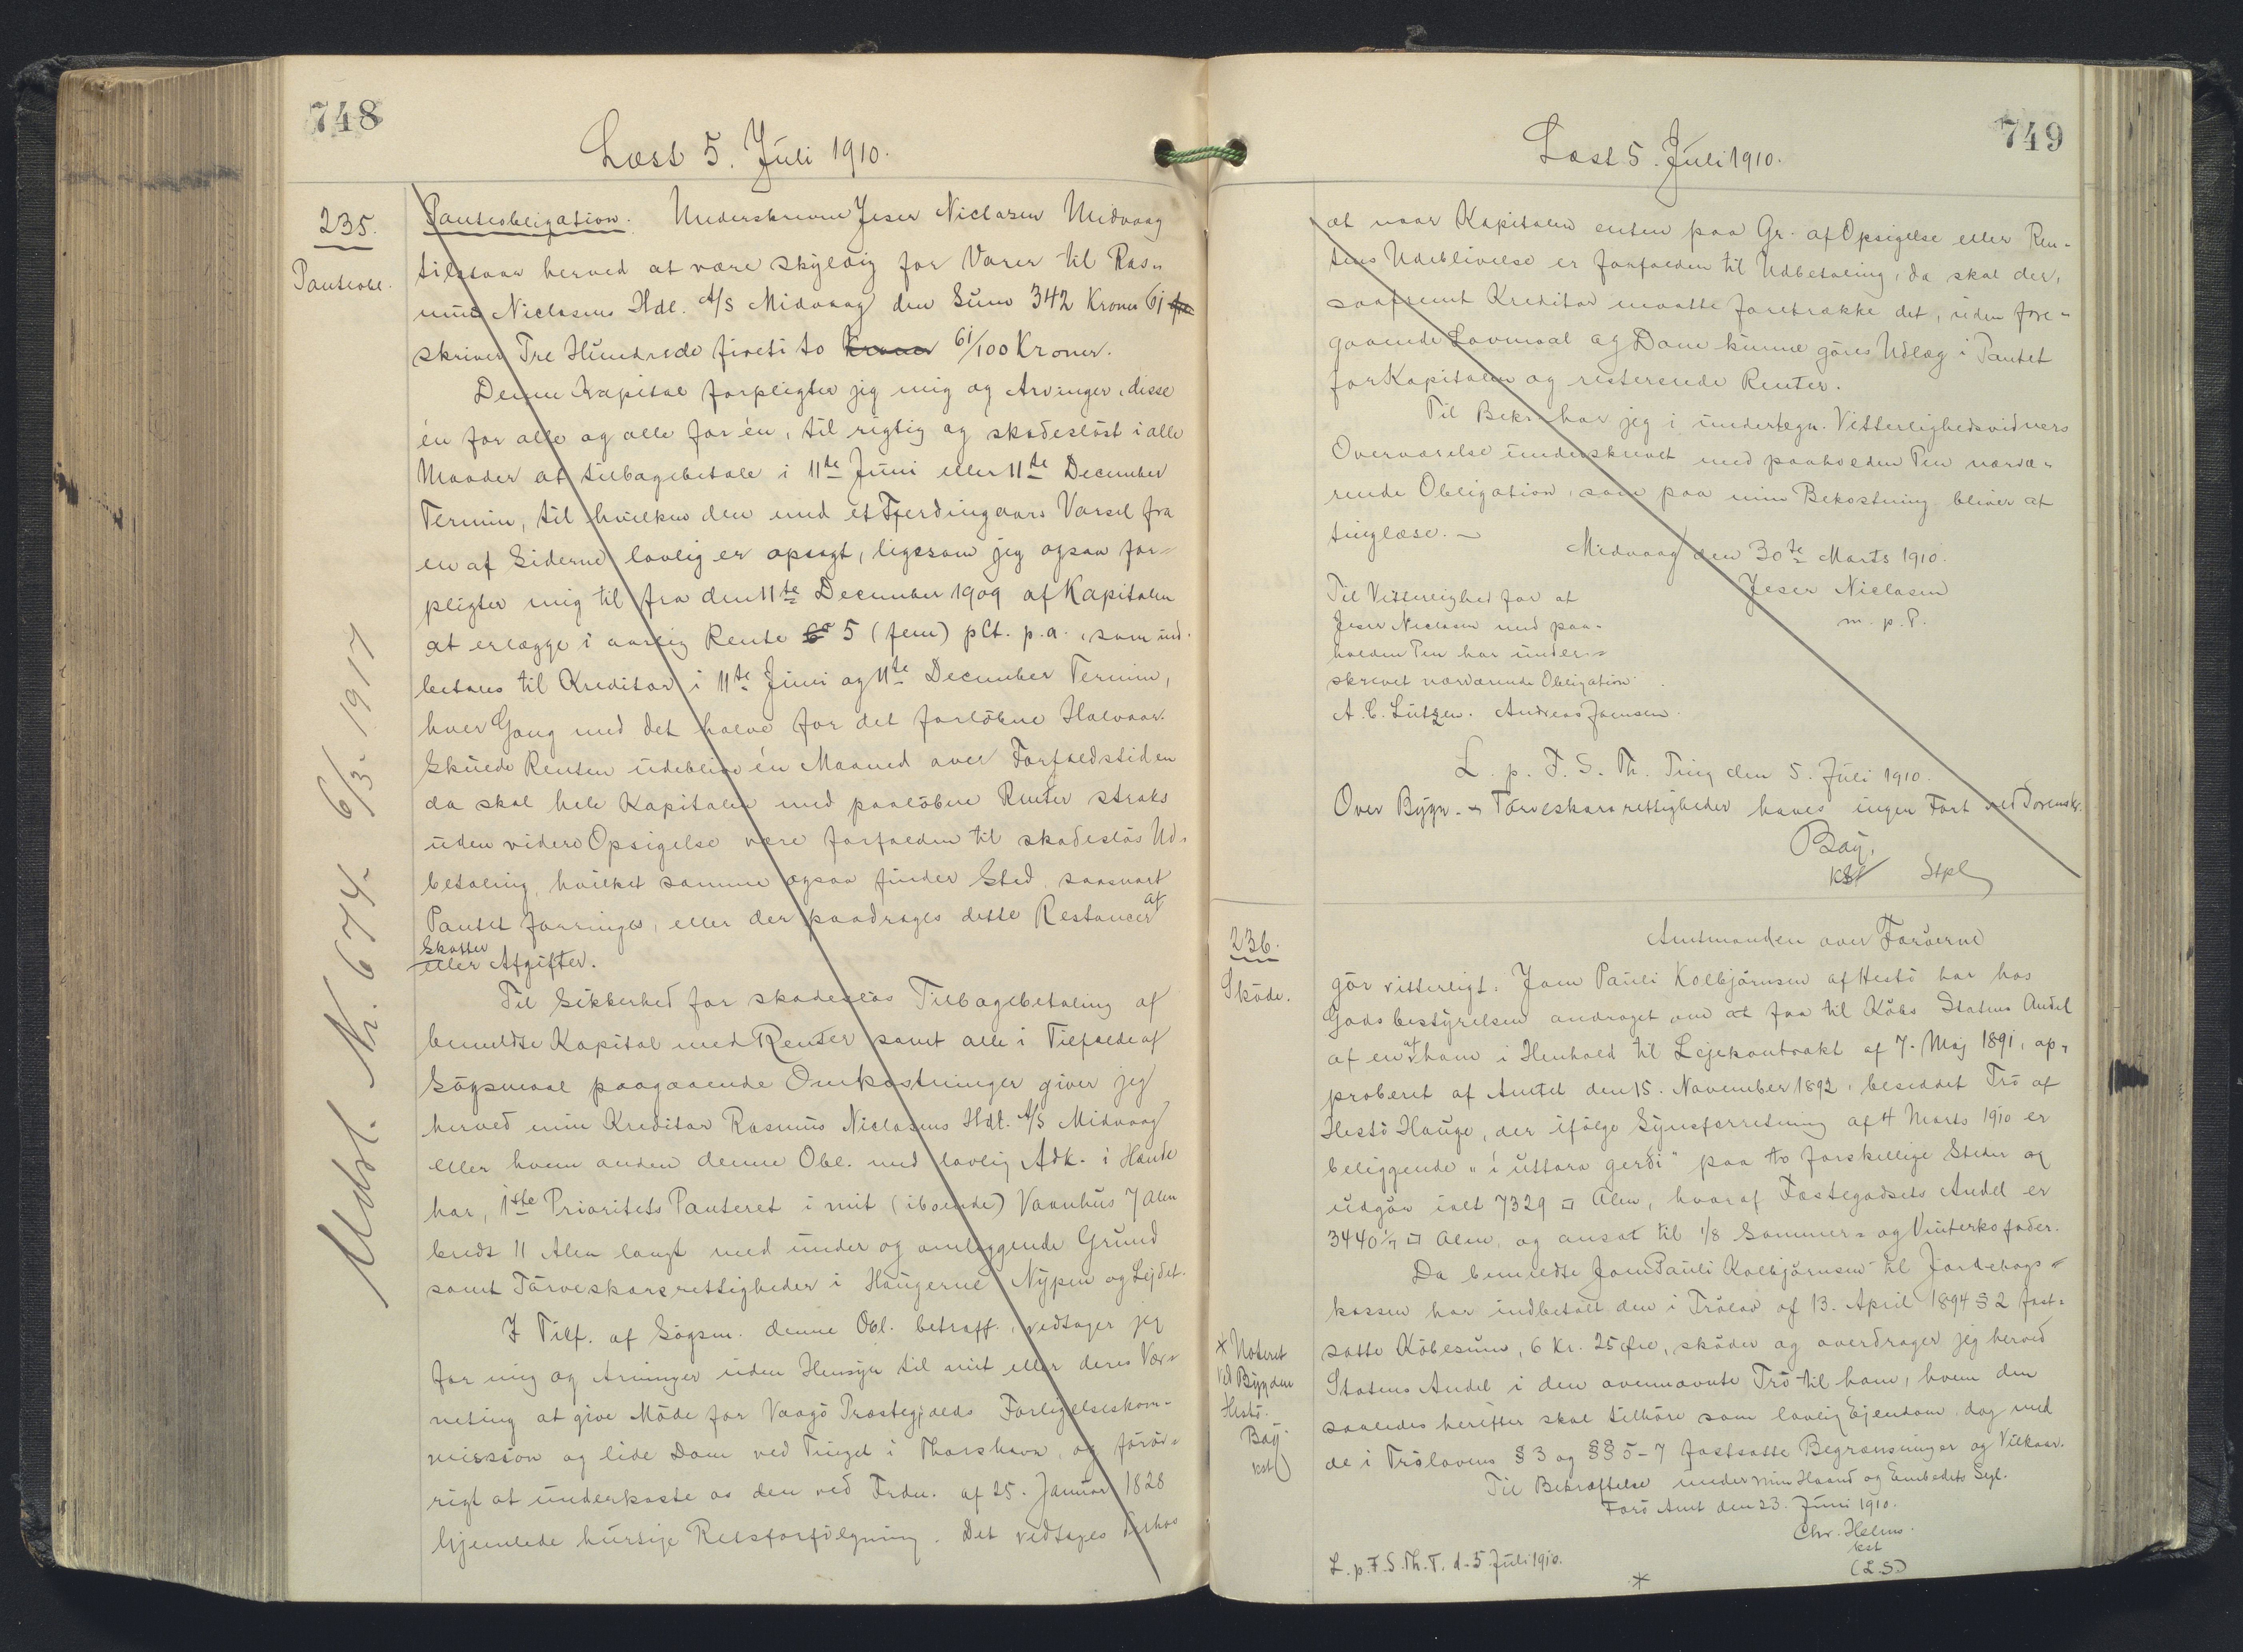 748
Læst 5. Juli 1910.
235.
Panteobl.
Panteobligation. Underskrevne Jeser Niclasen Midvaag
tilstaar herved at være skyldig for Varer til Ras-
mus Niclasens Hdl. A/S Midvaag den Sum 342 Kroner 61
skriver Tre Hundrede fireti to Kroner 61/100 Kroner.
Denne Kapital forpligter jeg mig og Arvinger, disse
én for alle og alle for én, til rigtig og skadesløst i alle
Maader at tilbagebetale i 11te Juni eller 11te December
Termin, til hvilken den med et Fjerdingaars Varsel fra
en af Siderne lovlig er opsagt, ligesom jeg ogsaa for-
pligter mig til fra den 11te December 1909 af Kapitalen
at erlægge i aarlig Rente 5 (fem) pCt. p.a., som ind-
betales til Kreditor i 11te Juni og 11te December Termin,
hver Gang med det halve for det forløbne Halvaar.
Skulde Renten udeblive én Maaned over Forfaldstiden
da skal hele Kapitalen med paaløbne Renter straks
uden videre Opsigelse være forfalden til skadesløs Ud-
betaling, hvilket samme ogsaa finder Sted, saasnart
Pantet forringes, eller der paadrages dette Restancer af
Skatter
eller Afgifter.
Til Sikkerhed for skadesløs Tilbagebetaling af
bemeldte Kapital med Renter samt alle i Tilfælde af
Søgsmaal paagaaende Omkostninger giver jeg
herved min Kreditor Rasmus Niclasens Hdl. A/S Midvaag
eller hvem anden denne Obl. med lovlig Adk. i Hænde
har, 1ste Prioritets Panteret i mit (iboende) Vaanhus 7 Alen
bredt 11 Alen langt med under og omliggende Grund
samt Tørveskærsrettigheder i Haugerne Nypen og Lejdet.
I Tilf. af Søgsm. denne Obl. betræff., vedtager jeg
for mig og Arvinger uden Hensyn til mit eller deres Vær-
neting at give Møde for Vaagø Præstegjælds Forligelseskom-
mission og lide Dom ved Tinget i Thorshavn, og forøv-
rigt at underkaste os den ved Frdn. af 25. Januar 1828
hjemlede hurtige Retsforfølgning. Det vedtages derhos
Udsl. Nr. 674. 6/3. 1917
749
Læst 5. Juli 1910.
at naar Kapitalen enten paa Gr. af Opsigelse eller Ren-
tens Udeblivelse er forfalden til Udbetaling, da skal der,
saafremt Kreditor maatte foretrække det, uden fore-
gaaende Lovmaal og Dom kunne gøres Udlæg i Pantet
for Kapitalen og resterende Renter.
Til Bekr. har jeg i undertegn. Vitterlighedsvidners
Overværelse underskrevet med paaholden Pen nærvæ-
rende Obligation, som paa min Bekostning bliver at
tinglæse. -
Midvaag den 30te Marts 1910.
Jeser Niclasen
m. p. P.
Til Vitterlighed for at
Jeser Niclasen med paa-
holden Pen har under-
skrevet nærværende Obligation.
A. C. Lützen. Andreas Joensen.
L. p. F. S. Th. Ting den 5. Juli 1910.
Over Bygn. - Tørveskærsrettigheder haves ingen Fort ved Sorensk.
Bay.
kst Stpl
236.
Skøde.
Amtmanden over Færøerne
gør vitterligt: Joen Pauli Kolbjørnsen af Hestø har hos
Godsbestyrelsen andraget om at faa til Købs Statens Andel
af en af ham i Henhold til Lejekontrakt af 7. Maj 1891, ap-
proberet af Amtet den 15. November 1892, besiddet Trø af
Hestø Hauge, der ifølge Synsforretning af 4 Marts 1910 er
beliggende "í uttara gerði" paa to forskellige Steder og
udgør ialt 7329 □ Alen, hvoraf Fæstegodsets Andel er
3440 1/7 □ Alen, og ansat til 1/8 Sommer- og Vinterkofoder.
Da bemeldte Joen Pauli Kolbjørnsen til Jordebogs-
kassen har indbetalt den i Trølov af 13. April 1894 § 2 fast-
satte Købesum, 6 Kr. 25 Øre, skøder og overdrager jeg herved
Statens Andel i den ovennævnte Trø til ham, hvem den
saaledes herefter skal tilhøre som lovlig Ejendom, dog med
de i Trølovens § 3 og §§ 5-7 fastsatte Begrænsninger og Vilkaar.
Til Bekræftelse under min Haand og Embedets Segl.
Færø Amt den 23. Juni 1910.
Chr. Helms.
kst
(L.S.)
L. p. F. S. Th. T. d. 5. Juli 1910.
*
* Noteret
ved Bygden
Hestø.
Bay
kst